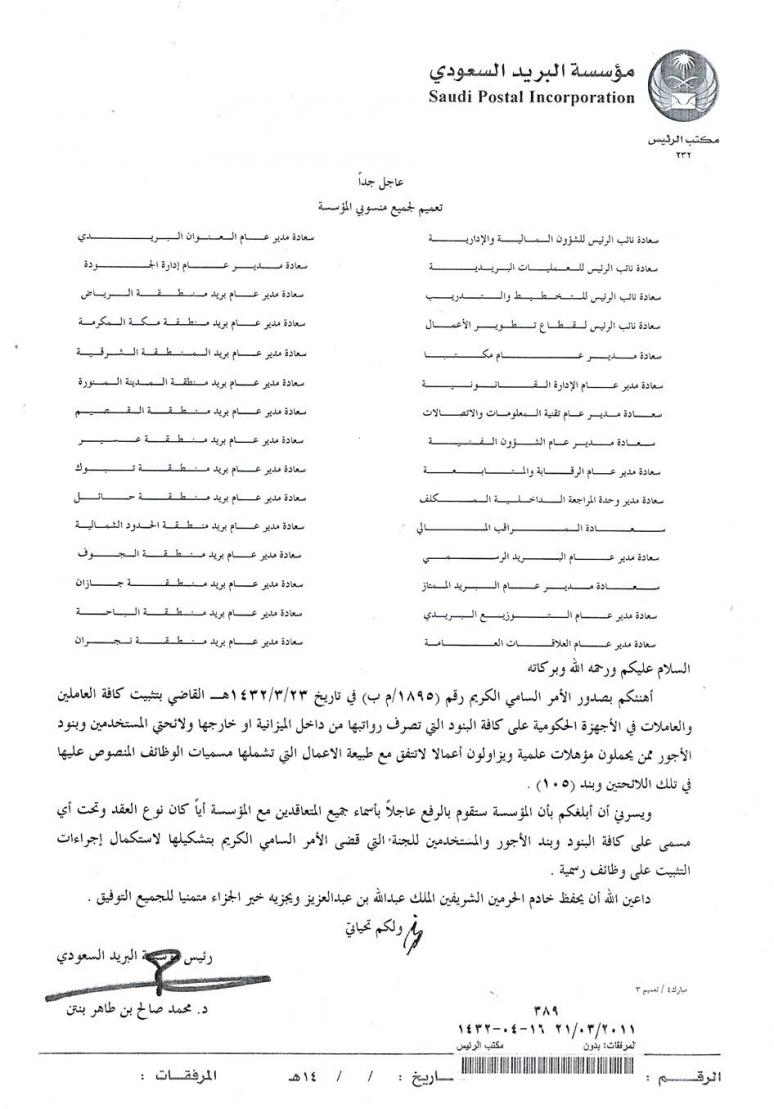 مؤسسة البريد السعودي
Saudi Postal Incorporation
مكتب الرئيس
٢٣٢
عاجل جداً
تعميم لجميع منسوبي المؤسسة
سعادة نائب الرئيس للشؤون المالية والإدارية
سعادة نائب الرئيس للعمليات البريدية
سعادة نائب الرئيس للتخطيط والتدريب
سعادة نائب الرئيس لقطاع تطوير الأعمال
سعادة مدير عام مكتبنا
سعادة مدير عام الإدارة القانونية
سعادة مدير عام تقنية المعلومات والاتصالات
سعادة مدير عام الشؤون الفنية
سعادة مدير عام الرقابة والمتابعة
سعادة مدير وحدة المراجعة الداخلية المكلف
سعادة المراقب المالي
سعادة مدير عام البريد الرسمي
سعادة مدير عام البريد الممتاز
سعادة مدير عام التوزيع البريدي
سعادة مدير عام العلاقات العامة
سعادة مدير عام العنوان البريدي
سعادة مدير عام إدارة الجودة
سعادة مدير عام بريد منطقة الرياض
سعادة مدير عام بريد منطقة مكة المكرمة
سعادة مدير عام بريد المنطقة الشرقية
سعادة مدير عام بريد منطقة المدينة المنورة
سعادة مدير عام بريد منطقة القصيم
سعادة مدير عام بريد منطقة عسير
سعادة مدير عام بريد منطقة تبوك
سعادة مدير عام بريد منطقة حائل
سعادة مدير عام بريد منطقة الحدود الشمالية
سعادة مدير عام بريد منطقة الجوف
سعادة مدير عام بريد منطقة جازان
سعادة مدير عام بريد منطقة الباحة
سعادة مدير عام بريد منطقة نجران
السلام عليكم ورحمه الله وبركاته
أهنئكم بصدور الأمر السامي الكريم رقم (١٨٩٥/م ب) في تاريخ ١٤٣٢/٣/٢٣هـ القاضي بتثبيت كافة العاملين
والعاملات في الأجهزة الحكومية على كافة البنود التي تصرف رواتبها من داخل الميزانية او خارجها ولائحتي المستخدمين وبنود
الأجور ممن يحملون مؤهلات علمية ويزاولون أعمالا لاتتفق مع طبيعة الاعمال التي تشملها مسميات الوظائف المنصوص عليها
في تلك اللائحتين وبند (١٠٥) .
ويسرني أن أبلغكم بأن المؤسسة ستقوم بالرفع عاجلاً بأسماء جميع المتعاقدين مع المؤسسة أياً كان نوع العقد وتحت أي
مسمى على كافة البنود وبند الأجور والمستخدمين للجنة التي قضى الأمر السامي الكريم بتشكيلها لاستكمال إجراءات
التثبيت على وظائف رسمية .
داعين الله أن يحفظ خادم الحرمين الشريفين الملك عبدالله بن عبدالعزيز ويجزيه خير الجزاء متمنيا للجميع التوفيق .
ولكم تحياتي
رئيس مؤسسة البريد السعودي
د. محمد صالح بن طاهر بنتن
مبارك٤ / تعميم ٣
٣٨٩
٢١/٠٣/٢٠١١ ١٤٣٢-٠٤-١٦
المرفقات: بدون مكتب الرئيس
الرقم : تاريخ : / / ١٤هـ المرفقات :